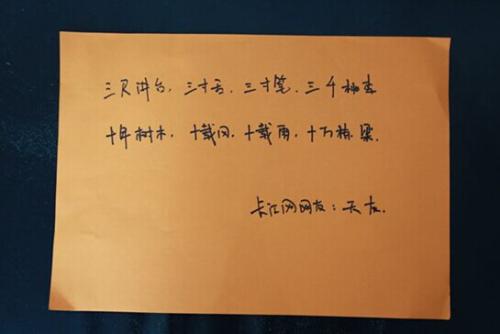 三尺讲台，三寸舌，三寸笔，三千桃李
十年树木，十载风，十载雨，十万栋梁.
长江网网友：天